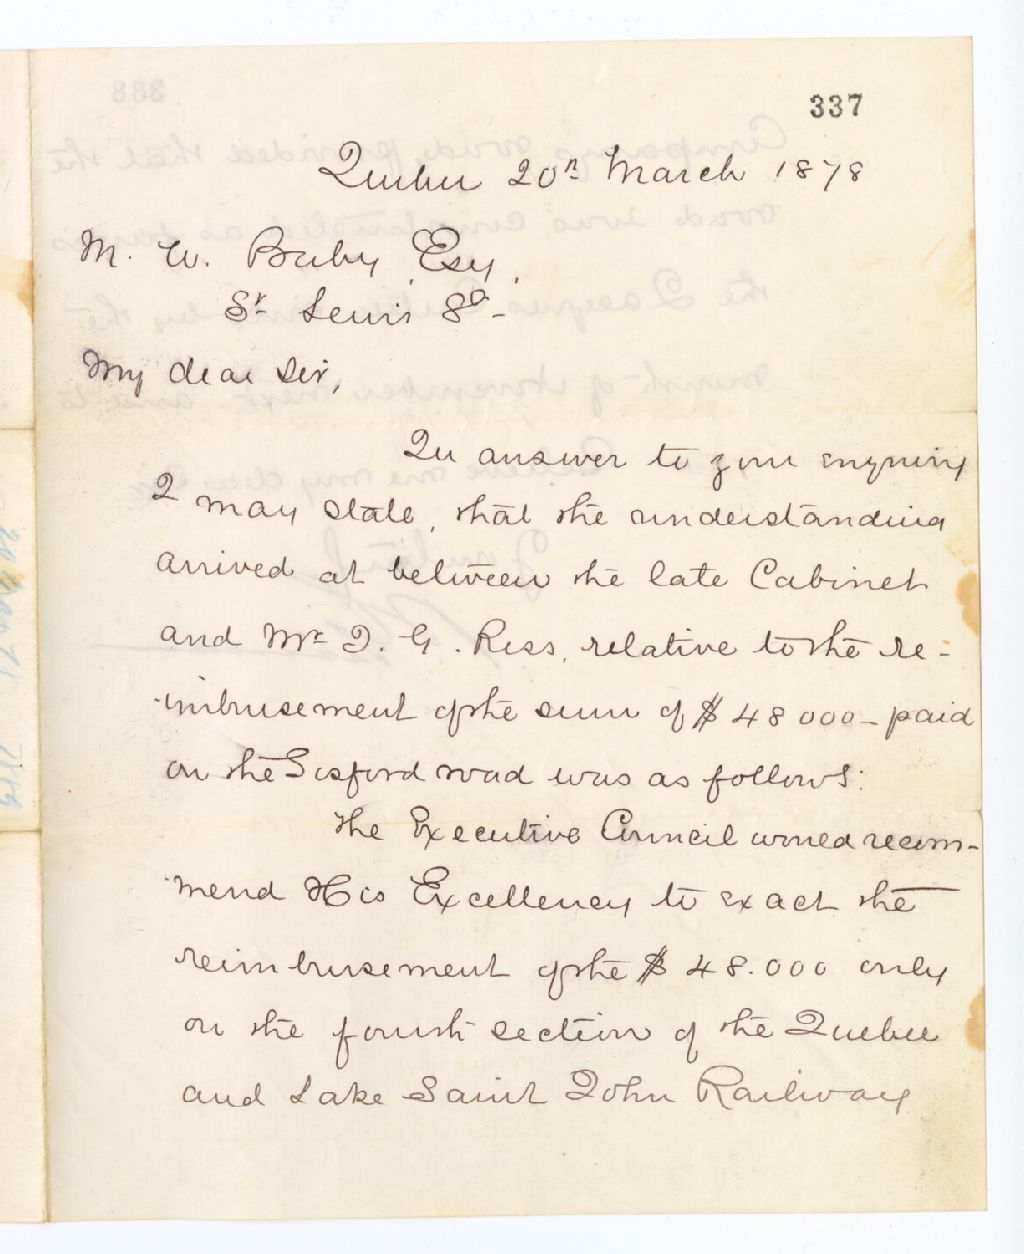 337
Quebec 20th March 1878
M. W. Baby Esq,
St Lewis St-
My dear Sir,
In answer to your enquiry
I may state, that the understanding
arrived at between the late Cabinet
and Mr J. G. Ross, relative to the re-
imbursement of the sum of $48 000- paid
on the Gosford road was as follows:
The Executive Council would recom-
mend His Excellency to exact the
reimbursement of the $48.000 only
on the fourth section of the Quebec
and Lake Saint John Railway